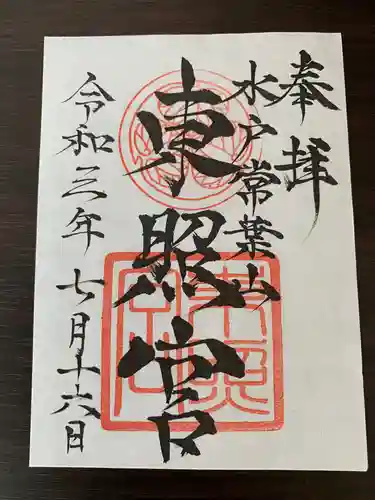 奉拝
水戸常葉山
東照宮
令和三年 七月十六日